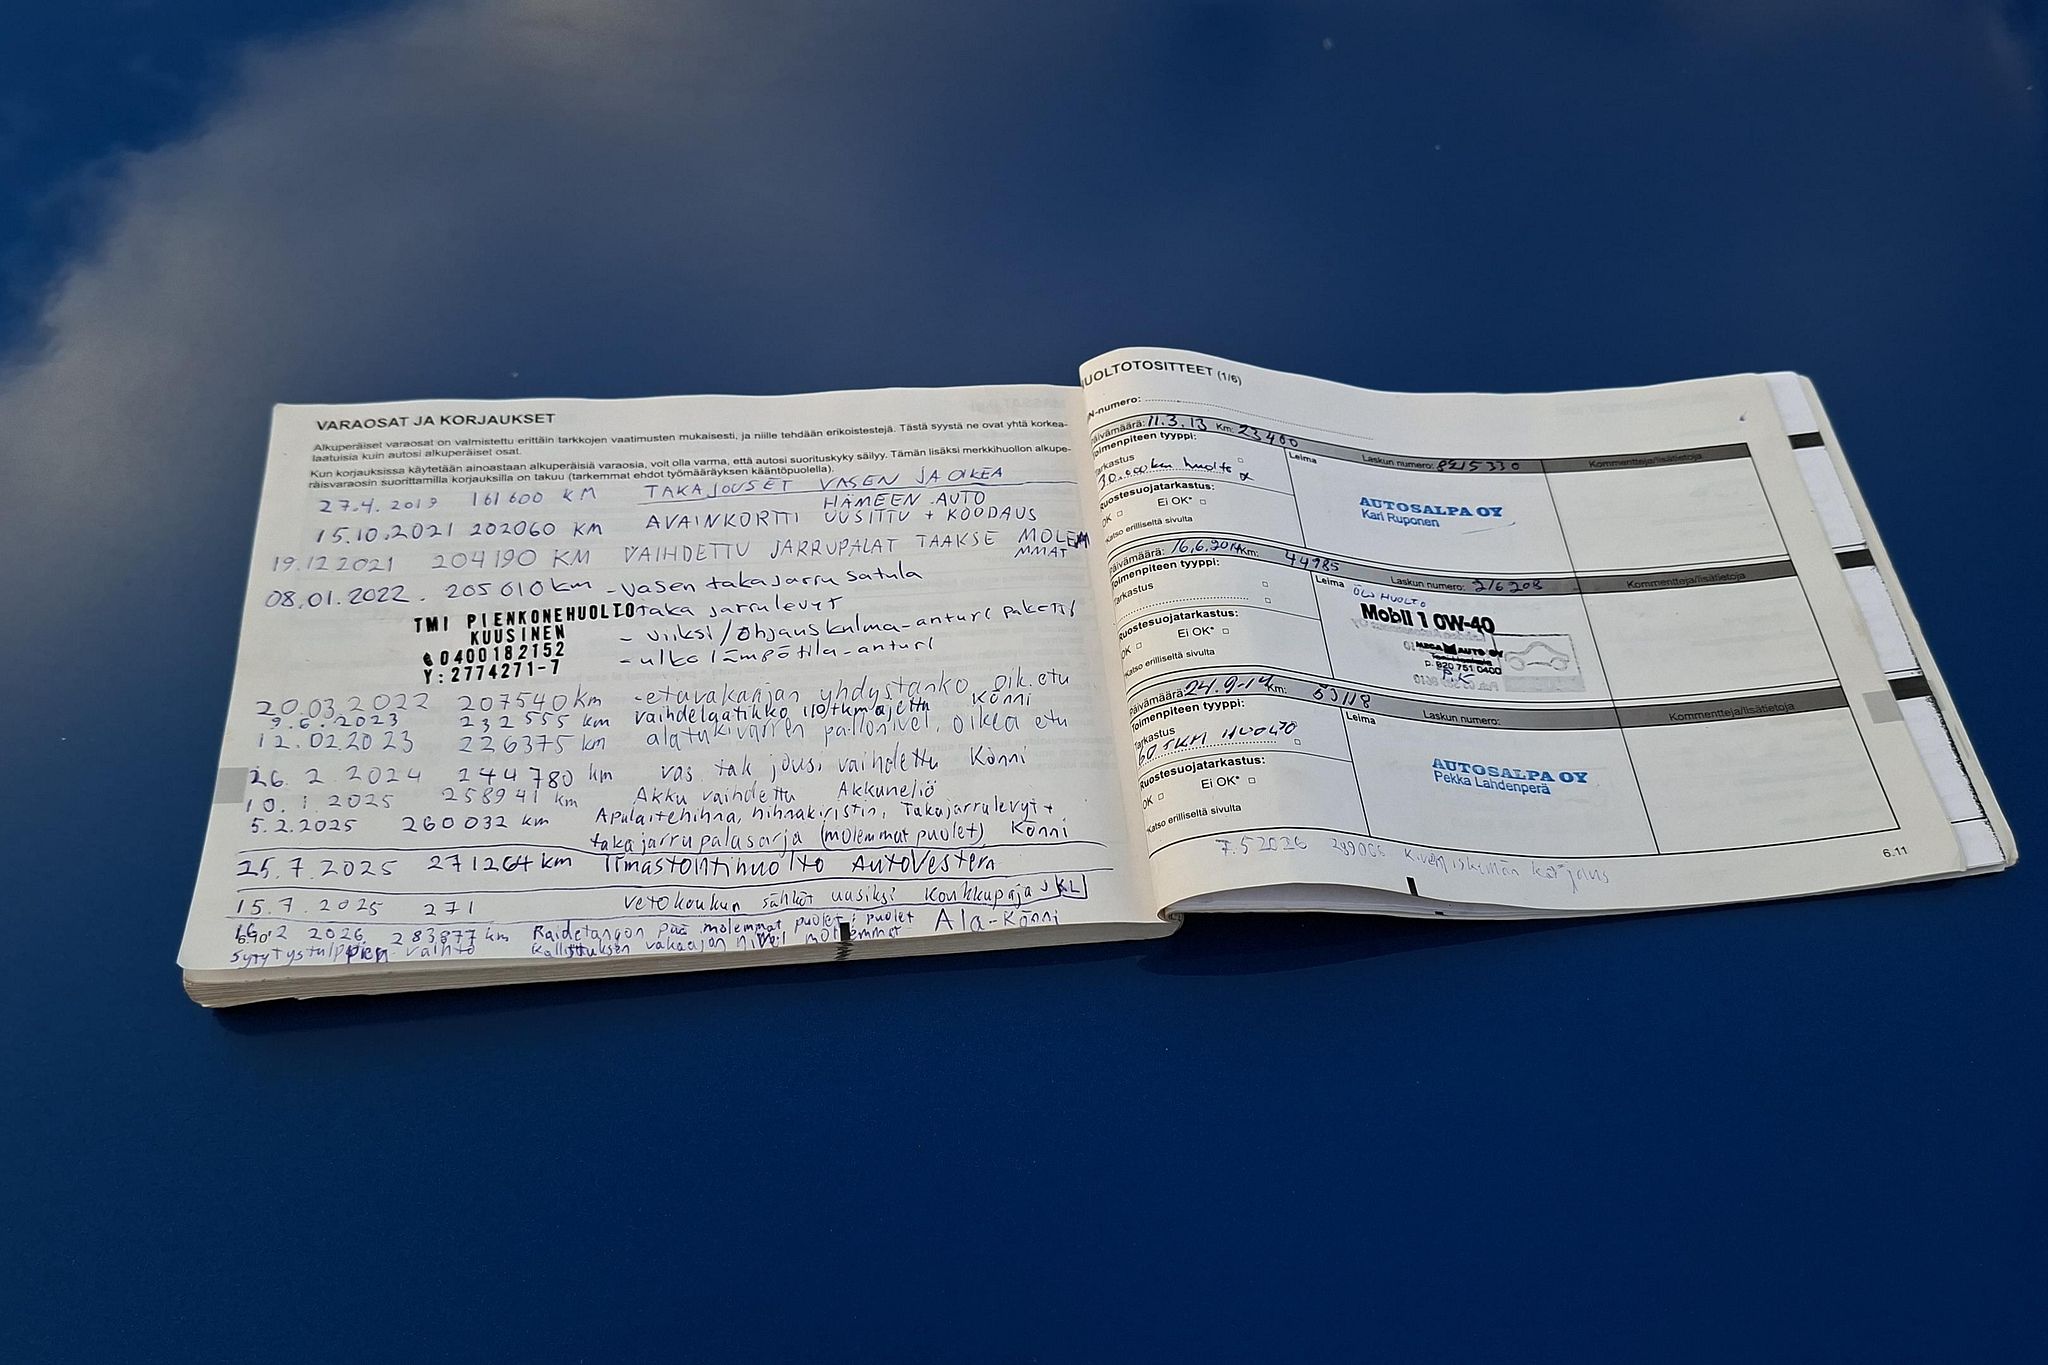 VARAOSAT JA KORJAUKSET
Alkuperäiset varaosat on valmistettu erittäin tarkkojen vaatimusten mukaisesti, ja niille tehdään erikoistestejä. Tästä syystä ne ovat yhtä korkea-
laatuisia kuin autosi alkuperäiset osat.
Kun korjauksissa käytetään ainoastaan alkuperäisiä varaosia, voit olla varma, että autosi suorituskyky säilyy. Tämän lisäksi merkkihuollon alkupe-
räisvaraosin suorittamilla korjauksilla on takuu (tarkemmat ehdot työmääräyksen kääntöpuolella).
27.4.2019 161600 KM TAKAJOUSET VASEN JA OIKEA
HÄMEEN AUTO
15.10.2021 202060 KM AVAINKORTTI UUSITTU + KOODAUS
19.12.2021 204190 KM VAIHDETTU JARRUPALAT TAAKSE MOLEM
MMAT
08.01.2022. 205610 km - vasen takajarru satula
TMI PIENKONEHUOLTO taka jarrulevyt
KUUSINEN - viiksi/ohjauskulma-anturi paketti
0400182152 - ulkolämpötila-anturi
Y:2774271-7
20.03.2022 207540 km - etuvakaajan yhdystanko oik. etu
Könni
9.6.2023 232555 km vaihdelaatikko 110tkm ajettu
12.02.2023 226375 km alatukivarren pallonivel, oikea etu
26.2.2024 244780 km vas tak jousi vaihdettu Könni
10.1.2025 258941 km Akku vaihdettu Akkuneliö
5.2.2025 260032 km Apulaitehihna, hihnakiristin, Takajarrulevyt +
takajarrupalasarja (molemmat puolet) Könni
25.7.2025 271264 km Ilmastointihuolto AutoVestern
15.7.2025 271 vetokoukun sähköt uusiksi Korikkupaja JKL
2 2026 283877 km Raidetangon pää molemmat puolet Ala-Könni
Sytytystulppien vaihto Kallistuksen vakaajan nivel molemmat puolet
HUOLTOTOSITTEET (1/6)
VIN-numero:
Päivämäärä: 11.3.13 Km: 23400
Toimenpiteen tyyppi: Leima Laskun numero: 8215330 Kommentteja/lisätietoja
Tarkastus
30.000km huolto
Ruostesuojatarkastus:
OK Ei OK*
*Katso erilliseltä sivulta
AUTOSALPA OY
Kari Ruponen
Päivämäärä: 16.6.2014 Km: 44985
Toimenpiteen tyyppi: Leima Laskun numero: 216208 Kommentteja/lisätietoja
Tarkastus
Ruostesuojatarkastus:
OK Ei OK*
*Katso erilliseltä sivulta
ÖLJYHUOLTO
Mobil 1 0W-40
MEGA AUTO OY
p. 020 751 0400
P.K
Päivämäärä: 24.9-14 Km: 53118
Toimenpiteen tyyppi: Leima Laskun numero: Kommentteja/lisätietoja
Tarkastus
60 TKM HUOLTO
Ruostesuojatarkastus:
OK Ei OK*
*Katso erilliseltä sivulta
AUTOSALPA OY
Pekka Lahdenperä
7.5 2026 289066 Kiveniskemän korjaus
6.11